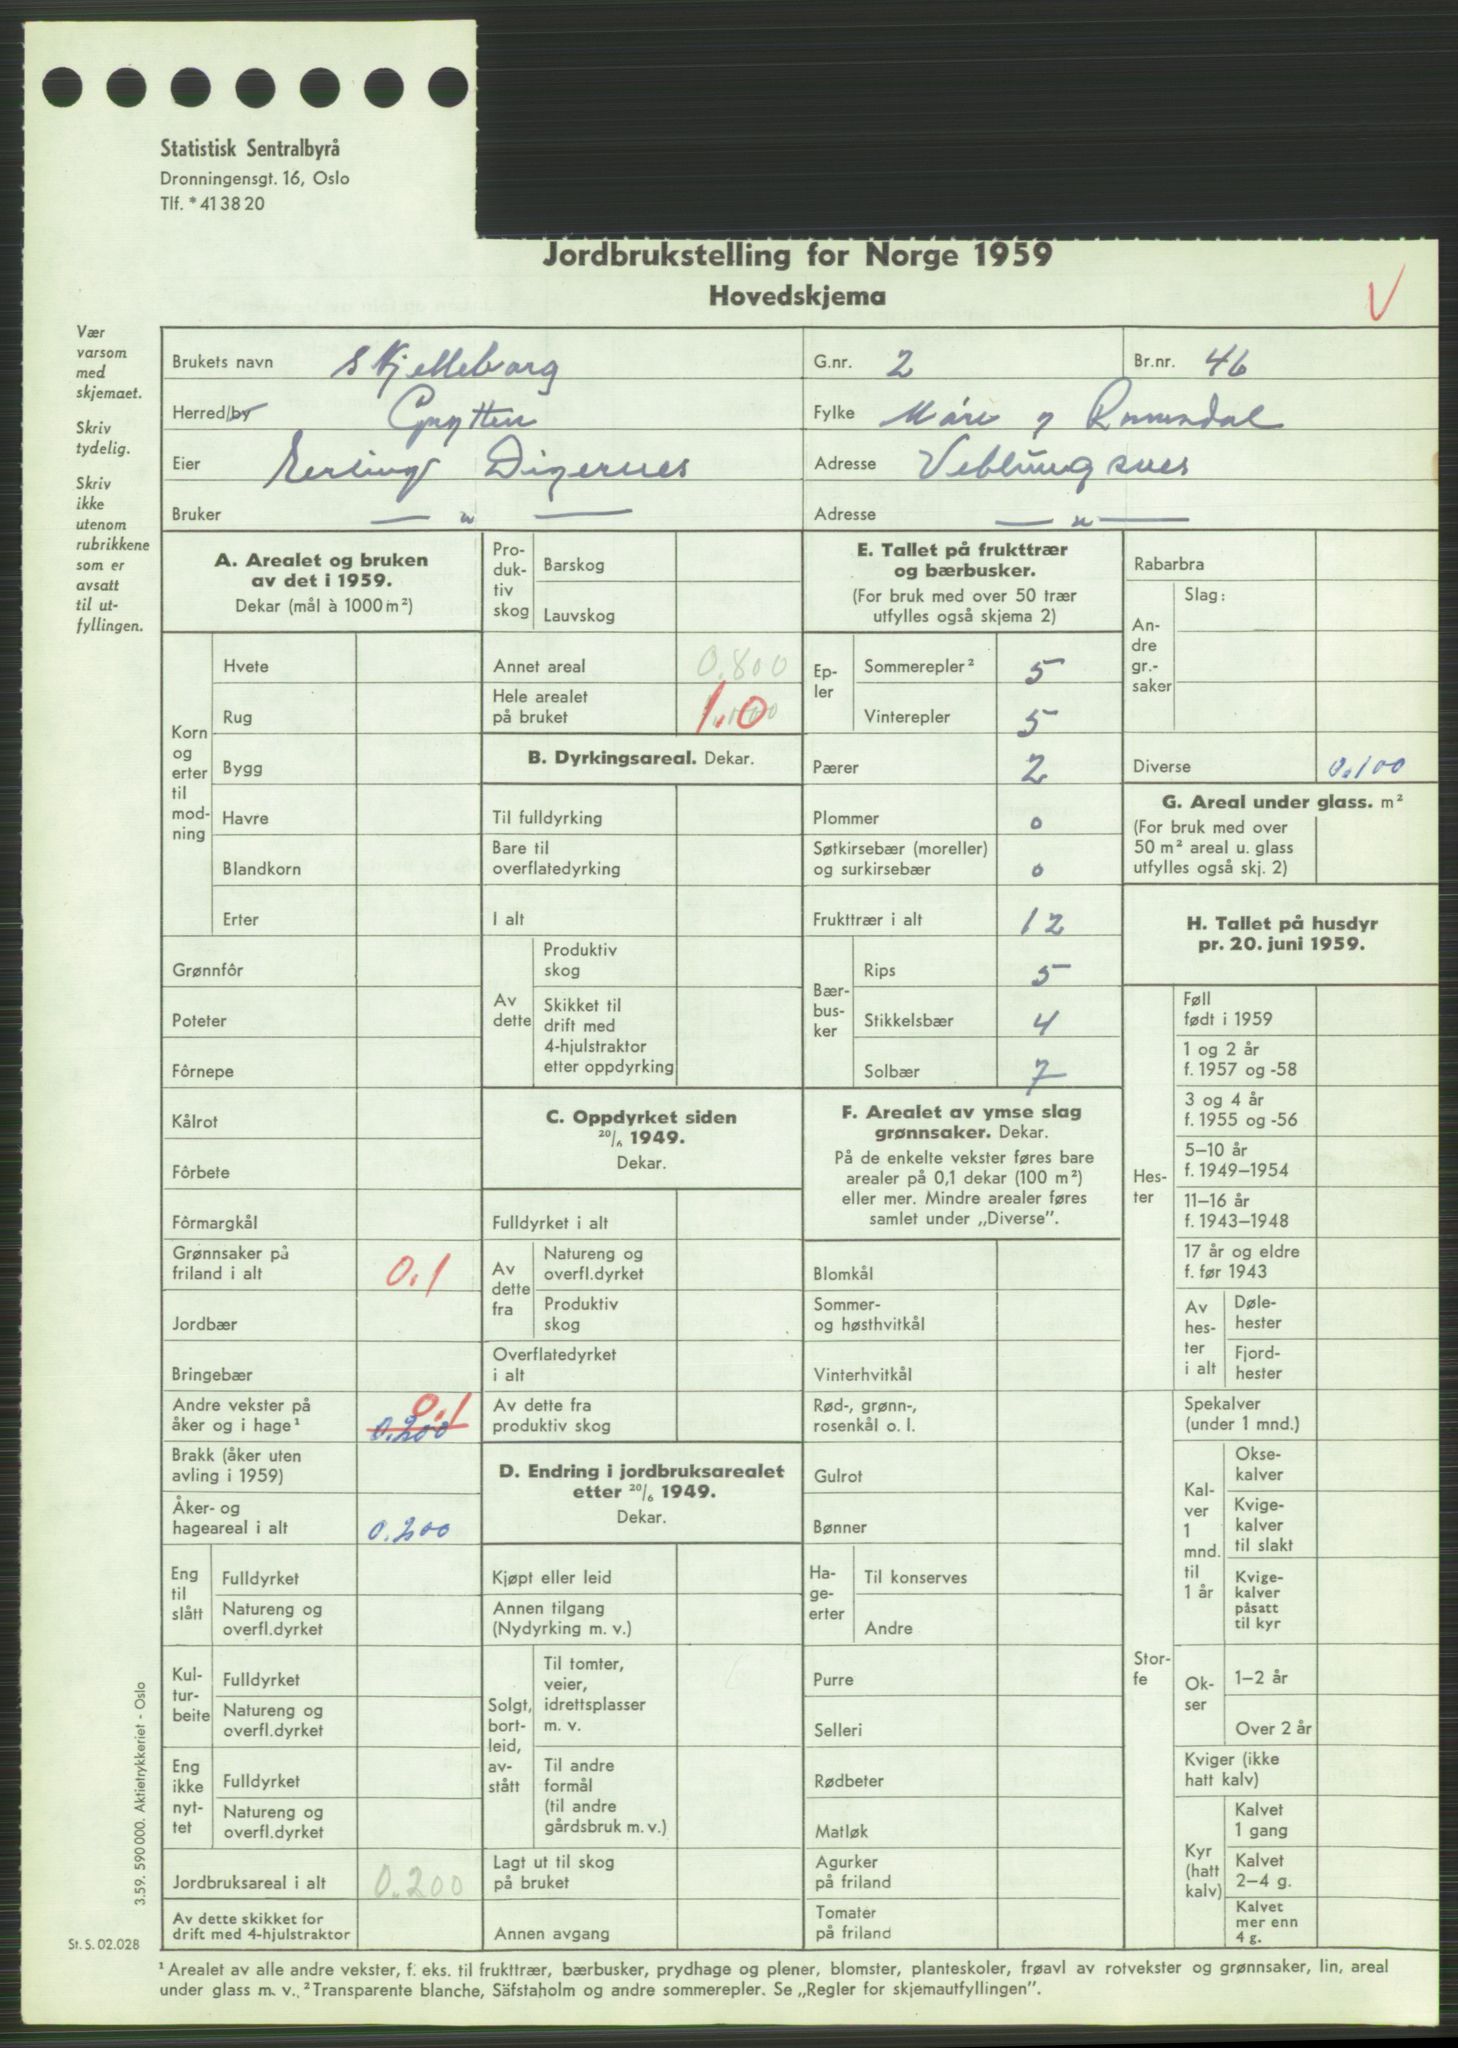 Statistisk Sentralbyrå
Dronningensgt. 16, Oslo
Tlf. *413820
Jordbrukstelling for Norge 1959
Hovedskjema
V
Vær
varsom
med
skjemaet.
Skriv
tydelig.
Skriv
ikke
utenom
rubrikkene
som er
avsatt
til ut-
fyllingen.
Brukets navn Skjelleborg G.nr. 2 Br.nr. 46
Herred/by Grytten Fylke Møre og Romsdal
Eier Erling Digernes Adresse Veblungsnes
Bruker — " — Adresse — " —
A. Arealet og bruken
av det i 1959.
Dekar (mål à 1000 m²)
Korn
og
erter
til
mod-
ning
Hvete
Rug
Bygg
Havre
Blandkorn
Erter
Grønnfôr
Poteter
Fôrnepe
Kålrot
Fôrbete
Fôrmargkål
Grønnsaker på
friland i alt 0.1
Jordbær
Bringebær
Andre vekster på 0.1
åker og i hage¹ 0.200
Brakk (åker uten
avling i 1959)
Åker- og
hageareal i alt 0.200
Eng
til
slått
Fulldyrket
Natureng og
overfl.dyrket
Kul-
tur-
beite
Fulldyrket
Natureng og
overfl.dyrket
Eng
ikke
nyt-
tet
Fulldyrket
Natureng og
overfl.dyrket
Jordbruksareal i alt 0.200
Av dette skikket for
drift med 4-hjulstraktor
Pro-
duk-
tiv
skog
Barskog
Lauvskog
Annet areal 0.800
Hele arealet
på bruket 1.0
B. Dyrkingsareal. Dekar.
Til fulldyrking
Bare til
overflatedyrking
I alt
Av
dette
Produktiv
skog
Skikket til
drift med
4-hjulstraktor
etter oppdyrking
C. Oppdyrket siden
20/6 1949.
Dekar.
Fulldyrket i alt
Av
dette
fra
Natureng og
overfl.dyrket
Produktiv
skog
Overflatedyrket
i alt
Av dette fra
produktiv skog
D. Endring i jordbruksarealet
etter 20/6 1949.
Dekar.
Kjøpt eller leid
Annen tilgang
(Nydyrking m. v.)
Solgt,
bort-
leid,
av-
stått
Til tomter,
veier,
idrettsplasser
m. v.
Til andre
formål
(til andre
gårdsbruk m. v.)
Lagt ut til skog
på bruket
Annen avgang
E. Tallet på frukttrær
og bærbusker.
(For bruk med over 50 trær
utfylles også skjema 2)
Ep-
ler
Sommerepler² 5
Vinterepler 5
Pærer 2
Plommer 0
Søtkirsebær (moreller)
og surkirsebær 0
Frukttrær i alt 12
Bær-
bus-
ker
Rips 5
Stikkelsbær 4
Solbær 7
F. Arealet av ymse slag
grønnsaker. Dekar.
På de enkelte vekster føres bare
arealer på 0,1 dekar (100 m²)
eller mer. Mindre arealer føres
samlet under „Diverse".
Blomkål
Sommer-
og høsthvitkål
Vinterhvitkål
Rød-, grønn-,
rosenkål o. l.
Gulrot
Bønner
Ha-
ge-
erter
Til konserves
Andre
Purre
Selleri
Rødbeter
Matløk
Agurker
på friland
Tomater
på friland
Rabarbra
An-
dre
gr.-
saker
Slag:
Diverse 0.100
G. Areal under glass. m²
(For bruk med over
50 m² areal u. glass
utfylles også skj. 2)
H. Tallet på husdyr
pr. 20. juni 1959.
Hes-
ter
Føll
født i 1959
1 og 2 år
f. 1957 og -58
3 og 4 år
f. 1955 og -56
5–10 år
f. 1949–1954
11–16 år
f. 1943–1948
17 år og eldre
f. før 1943
Av
hes-
ter
i alt
Døle-
hester
Fjord-
hester
Stor-
fe
Spekalver
(under 1 mnd.)
Kal-
ver
1
mnd.
til
1 år
Okse-
kalver
Kvige-
kalver
til slakt
Kvige-
kalver
påsatt
til kyr
Ok-
ser
1–2 år
Over 2 år
Kviger (ikke
hatt kalv)
Kyr
(hatt
kalv)
Kalvet
1 gang
Kalvet
2–4 g.
Kalvet
mer enn
4 g.
3.59. 590 000. Aktietrykkeriet - Oslo
St. S. 02.028
¹ Arealet av alle andre vekster, f. eks. til frukttrær, bærbusker, prydhage og plener, blomster, planteskoler, frøavl av rotvekster og grønnsaker, lin, areal
under glass m. v. ² Transparente blanche, Säfstaholm og andre sommerepler. Se „Regler for skjemautfyllingen".